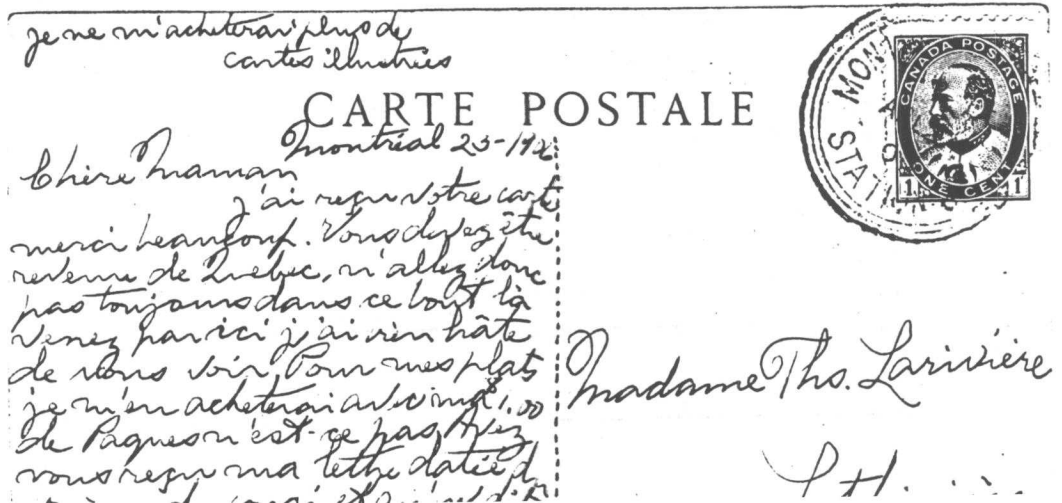 je ne m'acheterai plus de
cartes illustrées
CARTE POSTALE
Montréal 25-
Chère Maman
j'ai reçu votre carte
merci beaucoup. Vous devez être
revenue de Québec, n'allez donc
pas toujours dans ce bout là
Venez par ici j'ai hâte
de vous voir. Pour mes plats
je m'en acheterai avec ma $1.00
de Paques n'est-ce pas, Avez
vous reçu ma lettre datée d
CANADA POSTAGE
1 ONE CENT 1
MON
STATION
Madame Ths. Larivière